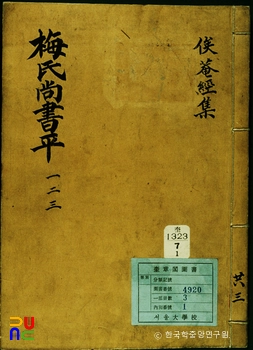 俟菴經集
梅氏尚書平
一二三
共三
奎
1323
7
1
奎章閣圖書
4920
3
1
서울大學校
PUNG
© 한국학중앙연구원